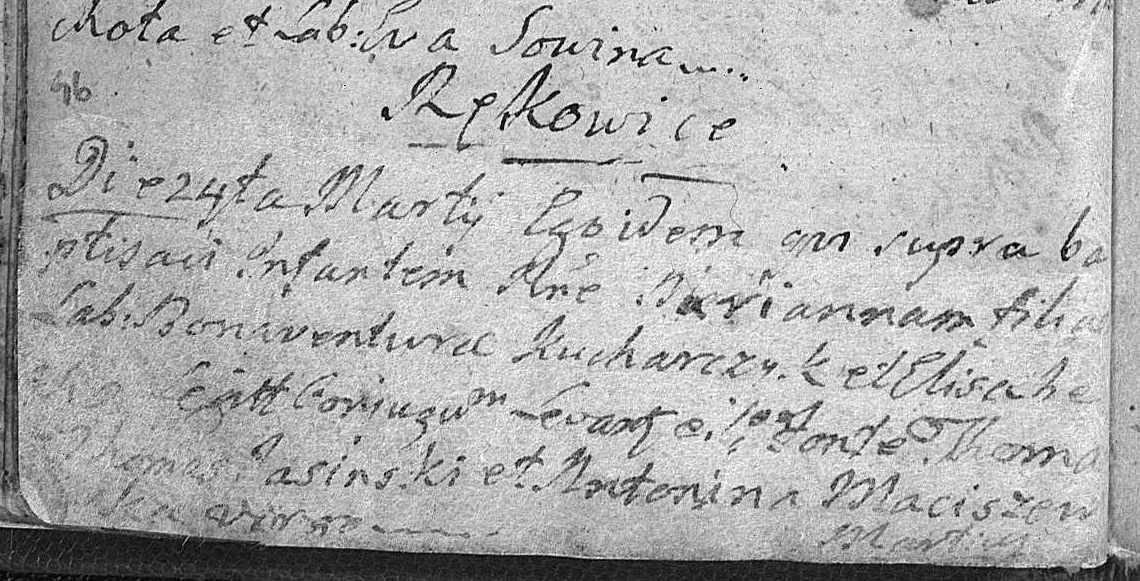 Kota et Lab: Eva Sowina
46
Rękowice
Die 24ta Martij Ego idem qui supra ba
ptisavi Infantem Nñe Mariannam filia
Lab: Bonaventuræ Kucharczyk et Elisabe
Legitt Coniugum Levantes de S. Fonte Thoma
Thomas Jasinski et Antonina Maciszew
ska virgo
Martius